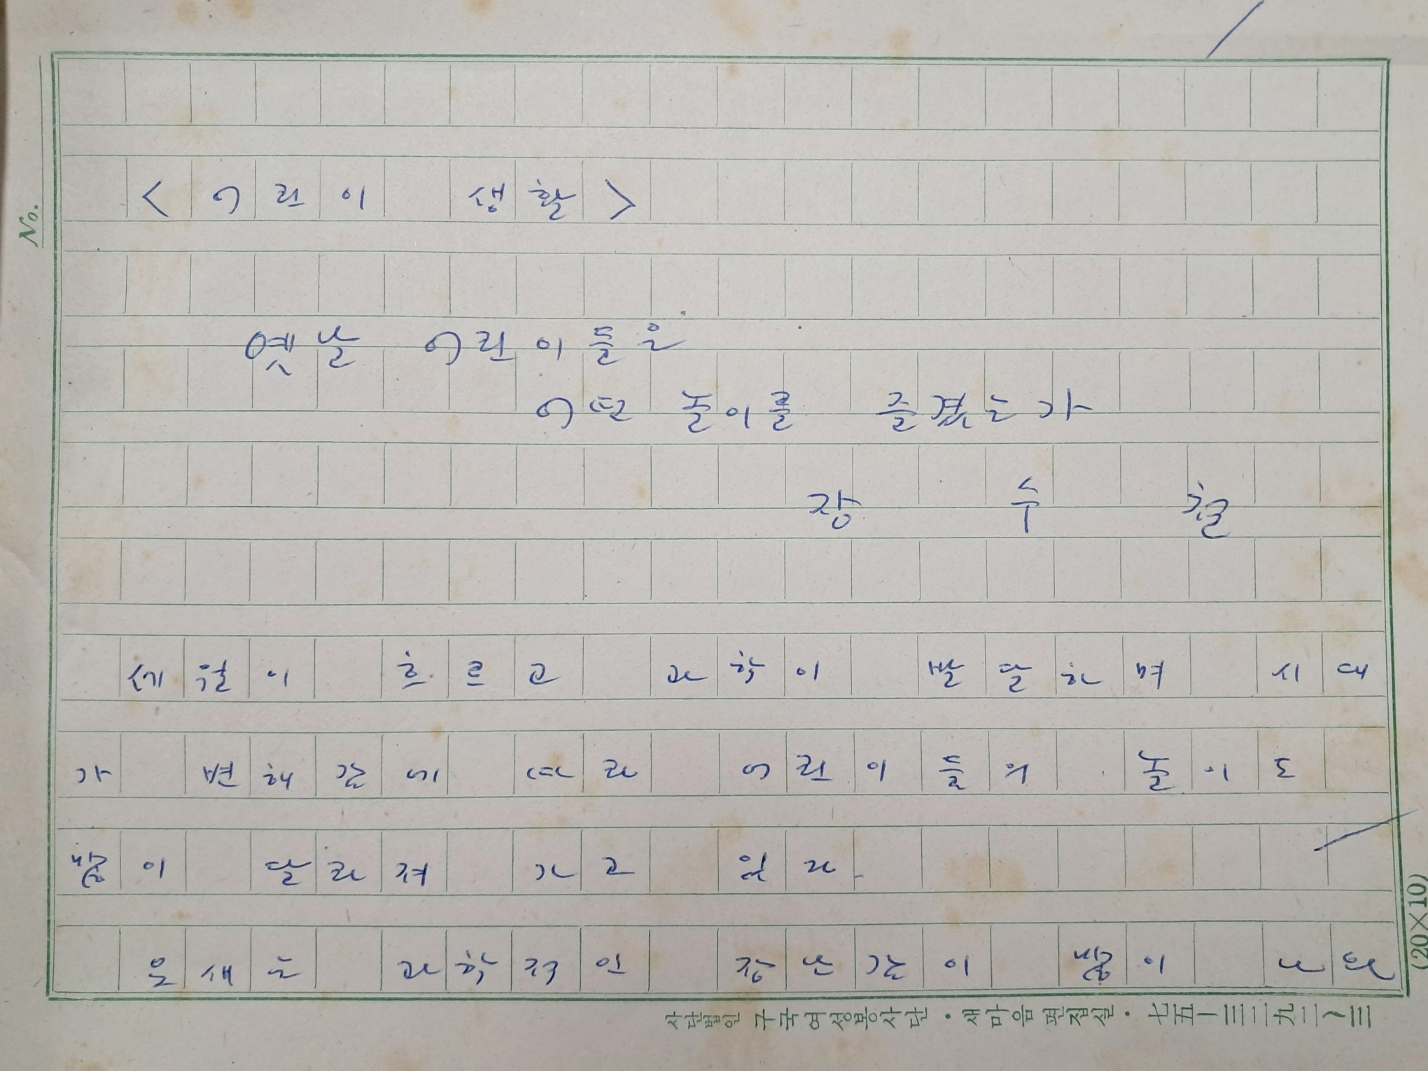 No.
< 어린이 생활 >
옛날 어린이들은
어떤 놀이를 즐겼는가
장 수 철
세월이 흐르고 과학이 발달하며 시대
가 변해감에 따라 어린이들의 놀이도
많이 달라져 가고 있다.
요새는 과학적인 장난감이 많이 나와
(20×10)
사단법인 구국여성봉사단 · 새마음편집실 · 七五一三三九二~三